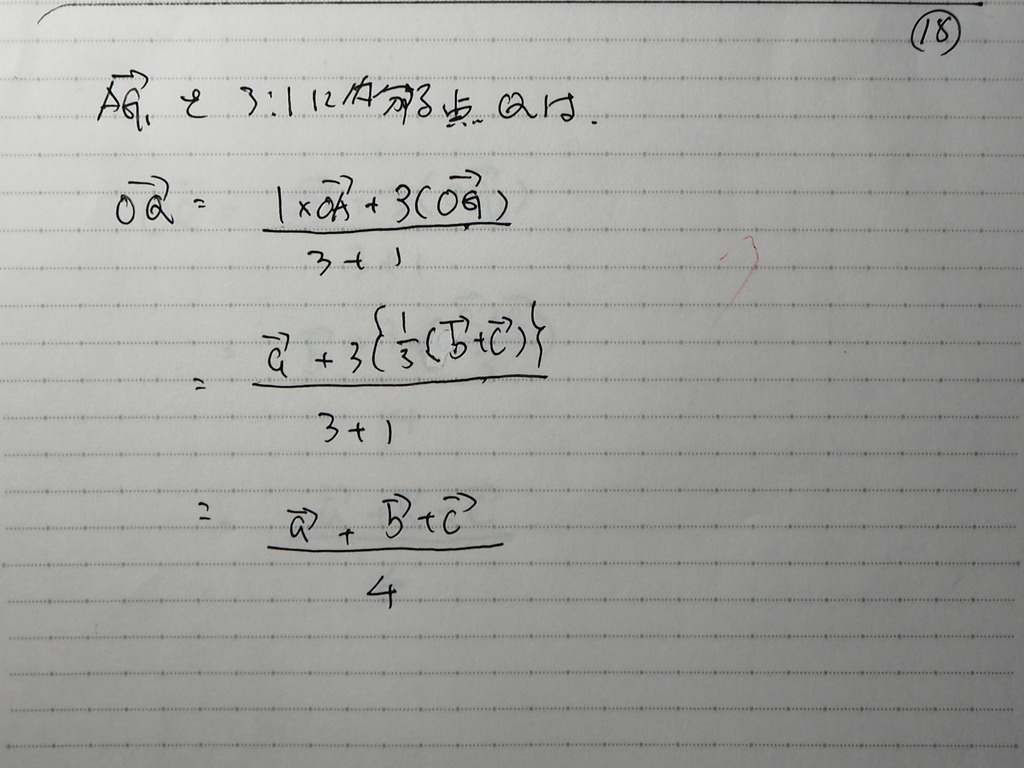 ⑱
AG₁→ を 3:1 に内分する点 Qは.
OQ→ = (1×OA→ + 3(OG→)) / (3+1)
= (a→ + 3{1/3(b→+c→)}) / (3+1)
= (a→ + b→+c→) / 4